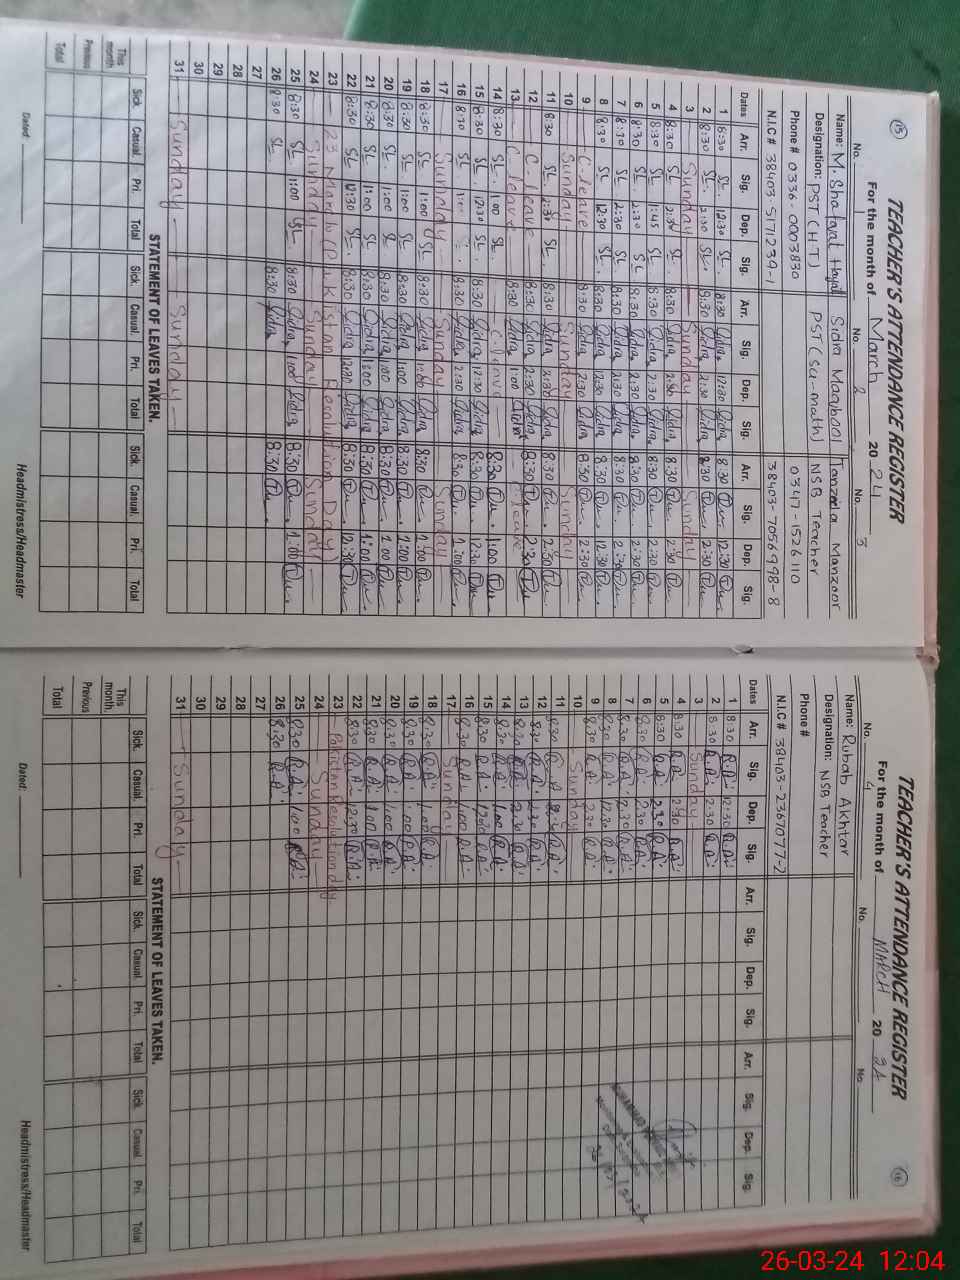 15
TEACHER'S ATTENDANCE REGISTER
For the month of March 2024
No. 1 No. 2 No. 3
Name: M. Shafayat Hayat Sidra Maqbool Tanzeela Manzoor
Designation: PST (H.T) PST (sci-math) NSB Teacher
Phone # 0336-0003830 0347-1526110
N.I.C # 38403-5171239-1 38403-7056998-8
Dates Arr. Sig. Dep. Sig. Arr. Sig. Dep. Sig. Arr. Sig. Dep. Sig.
1 8:30 SL. 12:30 SL. 8:30 Sidra 12:30 Sidra 8:30 12:30
2 8:30 SL. 2:30 SL. 8:30 Sidra 2:30 Sidra 8:30 2:30
3 Sunday Sunday Sunday
4 8:30 SL 2:30 SL. 8:30 Sidra 2:30 Sidra 8:30 2:30
5 8:30 SL 1:45 SL 8:30 Sidra 2:30 Sidra 8:30 2:30
6 8:30 SL 2:30 SL 8:30 Sidra 2:30 Sidra 8:30 2:30
7 8:30 SL 2:30 SL 8:30 Sidra 2:30 Sidra 8:30 2:30
8 8:30 SL 12:30 SL 8:30 Sidra 12:30 Sidra 8:30 12:30
9 C.leave 8:30 Sidra 2:30 Sidra 8:30 2:30
10 Sunday Sunday Sunday
11 8:30 SL 2:30 SL. 8:30 Sidra 2:30 Sidra 8:30 2:30
12 C. leave 8:30 Sidra 2:30 Sidra 8:30 2:30
13 C. leave 8:30 Sidra 1:00 Sidra leave
14 8:30 SL. 1:00 SL. C. leave 8:30 1:00
15 8:30 SL. 12:30 SL. 8:30 Sidra 12:30 Sidra 8:30 12:30
16 8:30 SL 8:30 Sidra 2:30 Sidra 8:30 1:00
17 Sunday Sunday Sunday
18 8:30 SL. 1:00 SL 8:30 Sidra 1:00 Sidra 8:30 1:00
19 8:30 SL 1:00 SL 8:30 Sidra 1:00 Sidra 8:30 1:00
20 8:30 SL 1:00 8:30 Sidra 1:00 Sidra 8:30 1:00
21 8:30 SL 1:00 SL. 8:30 Sidra 1:00 Sidra 8:30 1:00
22 8:30 SL 12:30 SL. 8:30 Sidra 12:30 Sidra 8:30 12:30
23 23 March (Pakistan Resolution Day)
24 Sunday Sunday Sunday
25 8:30 SL 1:00 SL. 8:30 Sidra 1:00 Sidra 8:30 1:00
26 8:30 SL 8:30 Sidra 8:30
27
28
29
30
31 Sunday Sunday
STATEMENT OF LEAVES TAKEN.
Sick. Casual. Pri. Total Sick. Casual. Pri. Total Sick. Casual. Pri. Total
This month.
Previous
Total
Dated: Headmistress/Headmaster
16
TEACHER'S ATTENDANCE REGISTER
For the month of MARCH 2024
No. 4 No. No.
Name: Rubab Akhtar
Designation: NSB Teacher
Phone #
N.I.C # 38403-2367077-2
Dates Arr. Sig. Dep. Sig. Arr. Sig. Dep. Sig. Arr. Sig. Dep. Sig.
1 8:30 R.A 12:30 R.A
2 8:30 R.A 2:30 R.A
3 Sunday
4 8:30 R.A 2:30 R.A
5 8:30 R.A 2:30 R.A
6 8:30 R.A 2:30 R.A
7 8:30 R.A 2:30 R.A
8 8:30 R.A 12:30 R.A
9 8:30 R.A 2:30 R.A
10 Sunday
11 8:30 R.A 2:30 R.A
12 8:30 R.A 2:30 R.A
13 8:30 R.A 2:30 R.A
14 8:30 R.A 1:00 R.A
15 8:30 R.A 12:30 R.A
16 8:30 R.A 1:00 R.A
17 Sunday
18 8:30 R.A 1:00 R.A
19 8:30 R.A 1:00 R.A
20 8:30 R.A 1:00 R.A
21 8:30 R.A 1:00 R.A
22 8:30 R.A 12:30 R.A
23 Pakistan Resolution day
24 Sunday
25 8:30 R.A 1:00 R.A
26 8:30 R.A
27
28
29
30
31 Sunday
STATEMENT OF LEAVES TAKEN.
Sick. Casual. Pri. Total Sick. Casual. Pri. Total Sick. Casual. Pri. Total
This month.
Previous
Total
Dated: Headmistress/Headmaster
26-03-24 12:04